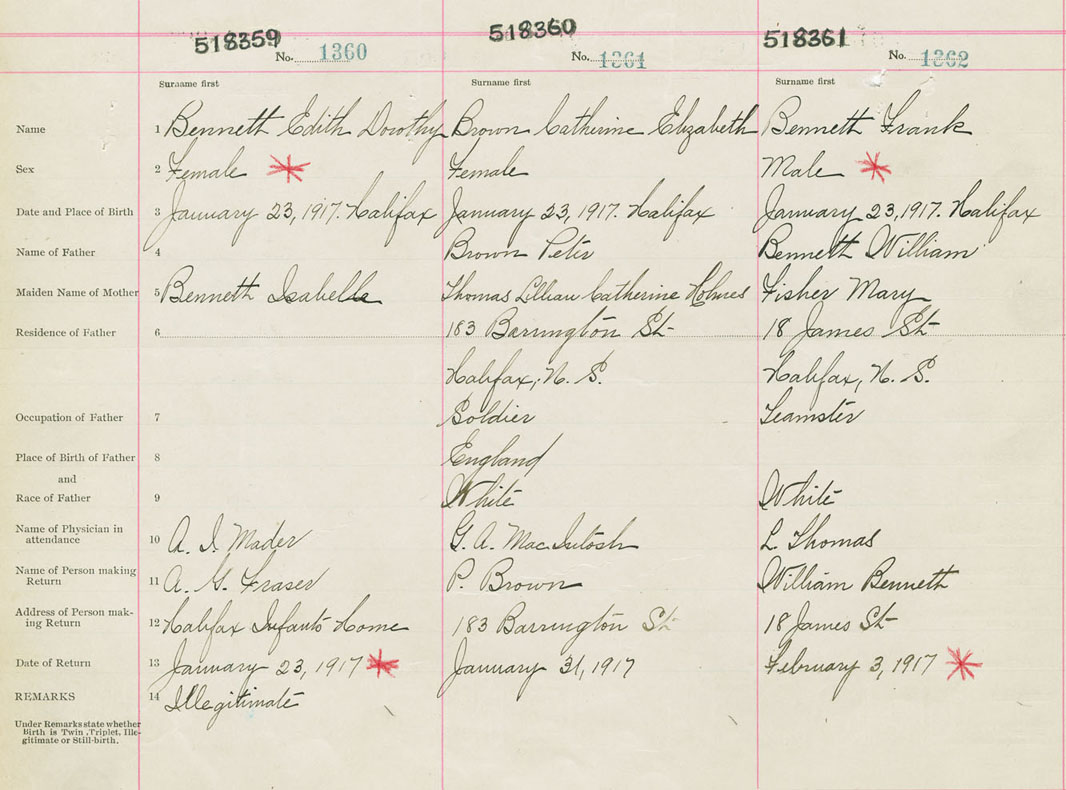 518359 518360 518361
No. 1360 No. 1361 No. 1362
Surname first Surname first Surname first
Name 1 Bennett Edith Dorothy Brown Catherine Elizabeth Bennett Frank
Sex 2 Female Female Male
Date and Place of Birth 3 January 23, 1917. Halifax January 23, 1917. Halifax January 23, 1917. Halifax
Name of Father 4 Brown Peter Bennett William
Maiden Name of Mother 5 Bennett Isabelle Thomas Lillian Catherine Holmes Fisher Mary
Residence of Father 6 183 Barrington St 18 James St
Halifax, N. S. Halifax, N. S.
Occupation of Father 7 Soldier Teamster
Place of Birth of Father 8 England
and
Race of Father 9 White White
Name of Physician in
attendance 10 A. I. Mader G. A. MacIntosh L Thomas
Name of Person making
Return 11 A. G. Fraser P. Brown William Bennett
Address of Person mak-
ing Return 12 Halifax Infants Home 183 Barrington St 18 James St
Date of Return 13 January 23, 1917 January 31, 1917 February 3, 1917
REMARKS 14 Illegitimate
Under Remarks state whether
Birth is Twin, Triplet, Ille-
gitimate or Still-birth.